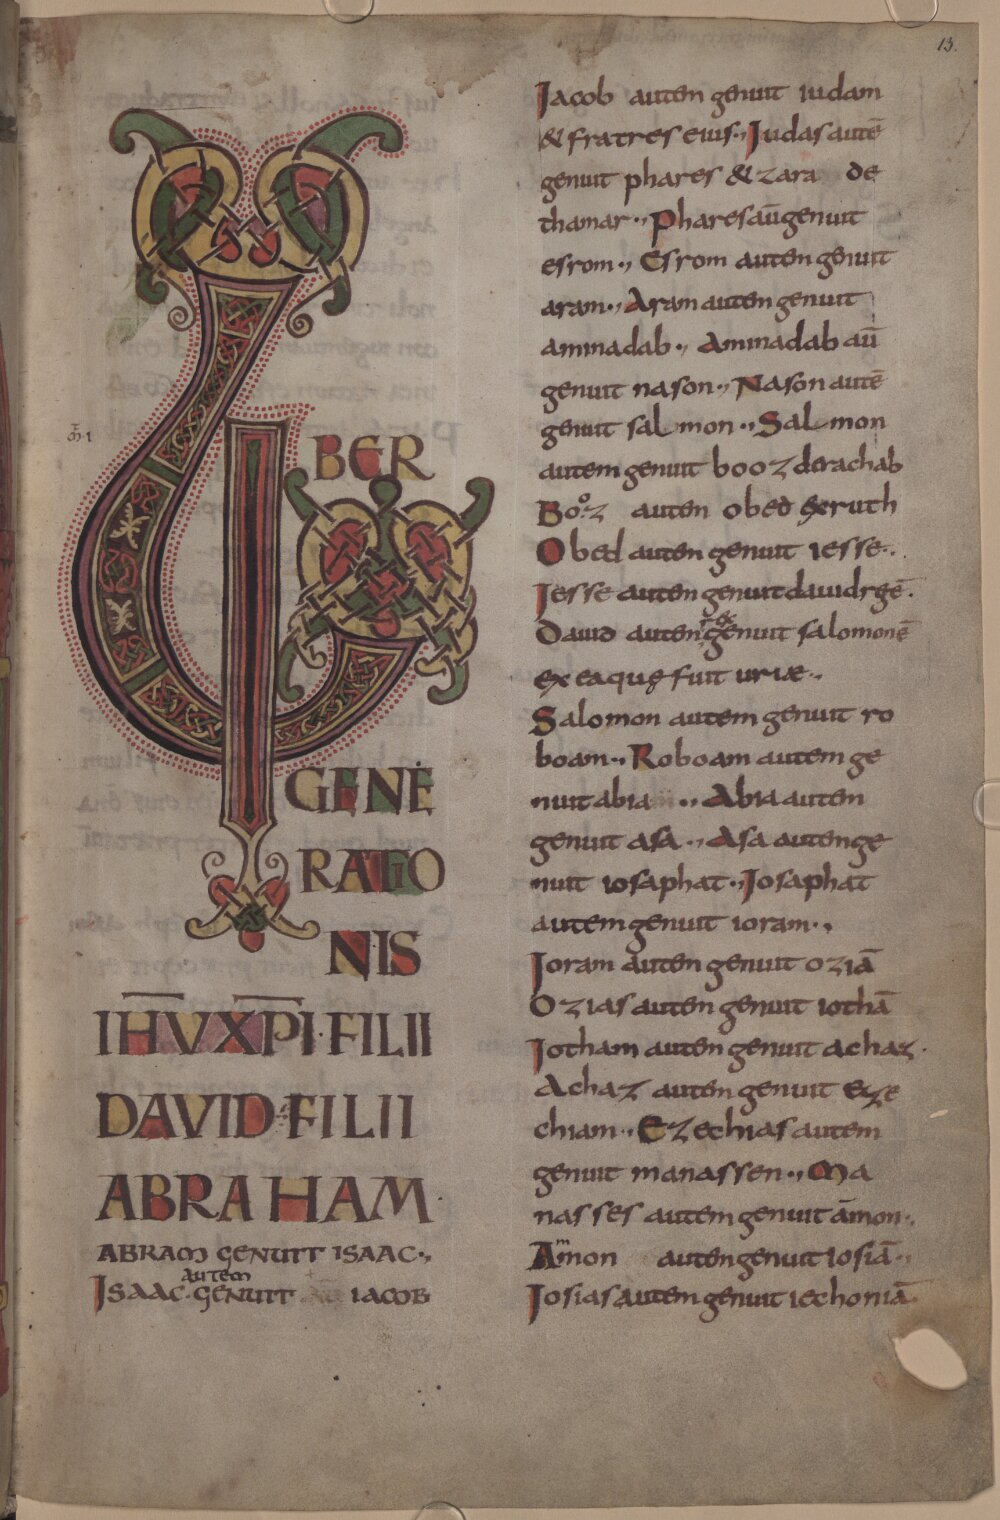 13.
LIBER
GENE
RATIO
NIS
IHV XPI · FILII
DAVID · FILII
ABRAHAM ·
ABRAM GENUIT ISAAC ·,
autem
ISAAC · GENUIT IACOB
Jacob auten genuit iudam
& fratres eius ·, Judas autē
genuit phares & zara de
thamar ·, Phares aū genuit
esrom ·, Esrom auten genuit
aram ·, Aram auten genuit
aminadab ·, Aminadab aū
genuit nason ·, Nason autē
genuit salmon ·, Salmon
autem genuit booz derachab
Booz auten obed exruth
Obed auten genuit iesse ·.
Jesse auten genuit dauid rgē .
rex
Dauid auten genuit salomonē
ex ea quę fuit uriæ ·.
Salomon autem genuit ro
boam ·. Roboam autem ge
nuit abia ·, Abia autem
genuit asa ·, Asa auten ge
nuit iosaphat ·, Josaphat
autem genuit ioram ·,
Joram auten genuit oziā
Ozias auten genuit iothā
Jotham auten genuit achaz ·
Achaz auten genuit eze
chiam ·, Ezechias autem
genuit manassen ·, Ma
nasses autem genuit āmon ·,
m
Amon auten genuit iosiā ·,
Josias autem genuit iechoniā